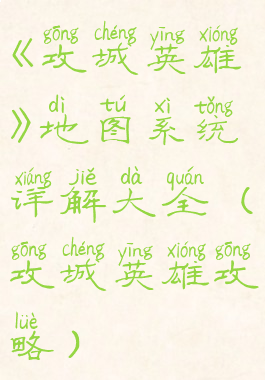 gōng chéng yīng xióng
《攻城英雄
dì tú xì tǒng
》地图系统
xiáng jiě dà quán
详解大全（
gōng chéng yīng xióng gōng
攻城英雄攻
lüè
略）